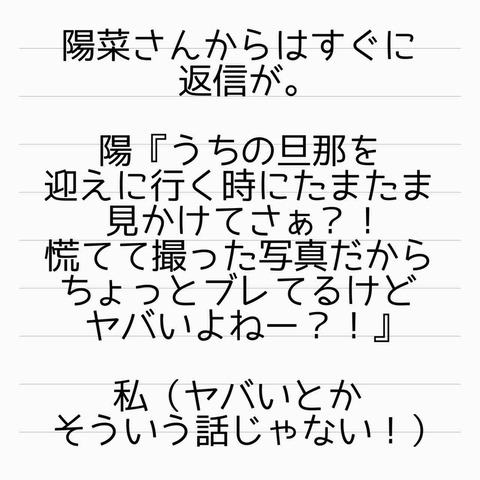 陽菜さんからはすぐに
返信が。
陽『うちの旦那を
迎えに行く時にたまたま
見かけてさぁ？！
慌てて撮った写真だから
ちょっとブレてるけど
ヤバいよねー？！』
私（ヤバいとか
そういう話じゃない！）